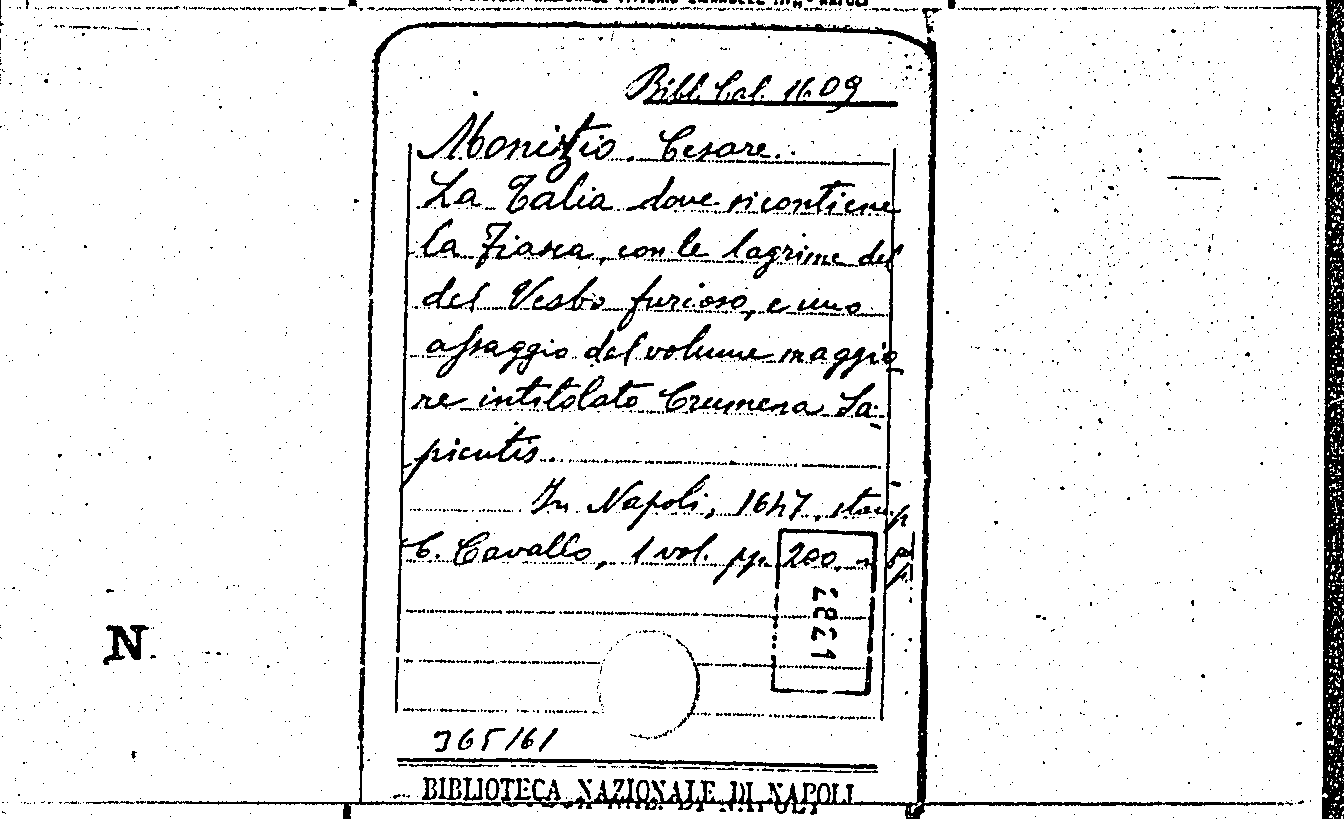 Bibl. Cal. 1609
Monizio. Cesare.
La Talia dove si contiene
la Fiasca, con le lagrime del
del Vesbo furioso, e uno
assaggio del volume maggio
re intitolato Crumena Sa-
pientis.
In Napoli, 1647, stamp
C. Cavallo, 1 vol. pp. 200.
N.
365/61
BIBLIOTECA NAZIONALE DI NAPOLI